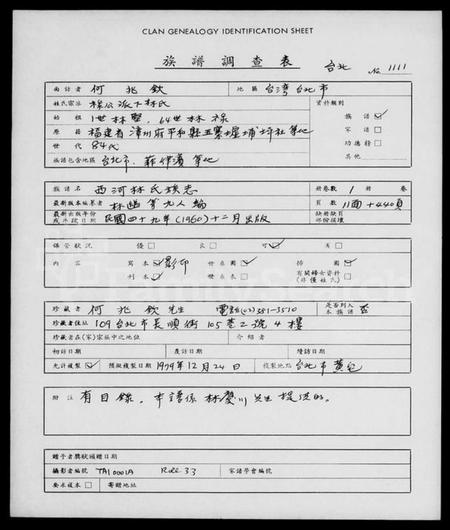 CLAN GENEALOGY IDENTIFICATION SHEET
族譜調查表 台北 No. 1111
面訪者 何兆欽 地區 台湾台北市
姓氏宗派 下林氏 資料類別
始祖 1世林堅, 64世林祿 族譜
原籍 福建省漳州府平和縣五寨 埔坪社 等地 家譜
世代 84代 功德榜
族譜包含地區 台北市、菲律濱 等地 其他
族譜名 西河林氏族志 冊卷數 1 冊 卷
最新版本編纂者 林 等九人編 頁數 11面+440頁
最新出版年份或手抄日期 民國四十九年(1960)十二月出版 缺冊缺頁部份損壞
保管狀況 優 良 可 差
內容 寫本 影印 世系圖 掃圖
刊本 世系表 有關婦女資料(非僅姓氏)
珍藏者 何兆欽 先生 電話(02)551-3510 是否列入本族譜 否
珍藏者住址 109台北市長順街105巷2號4樓
珍藏者在(家)宗族中之地位 介紹者
初訪日期 覆訪日期 續訪日期
允許複製 預擬複製日期 1979年12月24日 複製地點 台北市
附注 有目錄。本譜係林 川先生提供的。
贈予者獎狀頒贈日期
攝影者編號 TA10001A Roll 33 家譜學會編號
要求複本 寄贈地址